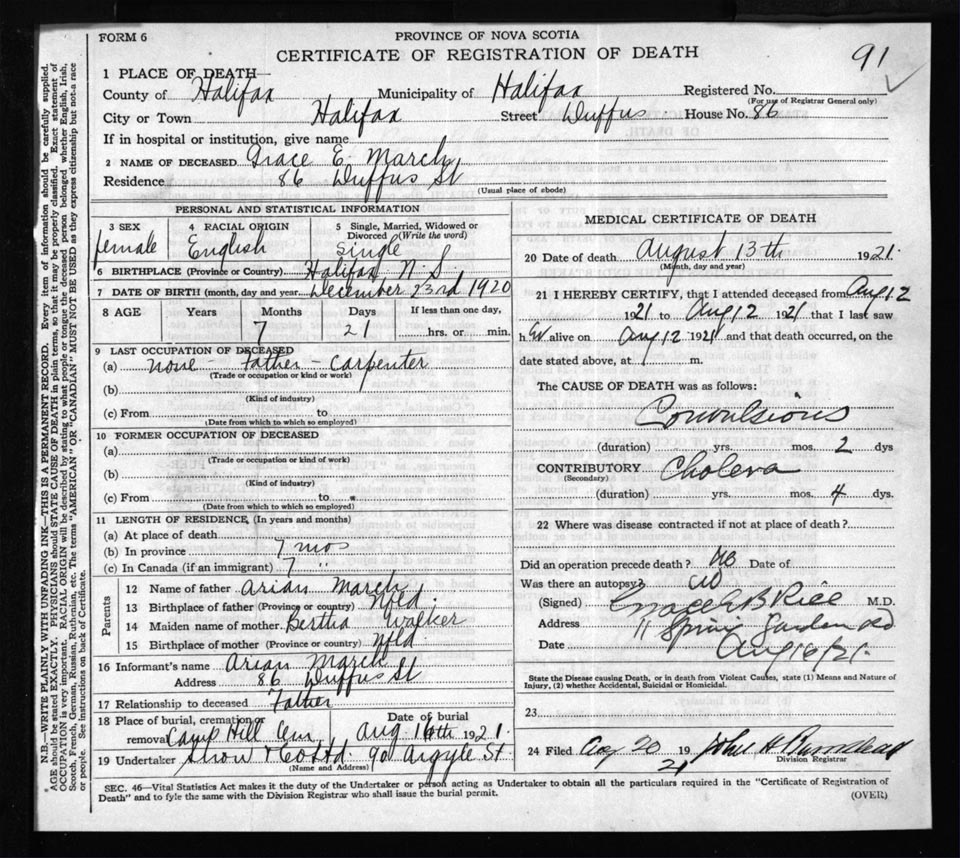 FORM 6
PROVINCE OF NOVA SCOTIA
CERTIFICATE OF REGISTRATION OF DEATH
91
1 PLACE OF DEATH
County of Halifax Municipality of Halifax Registered No.
(For use of Registrar General only)
City or Town Halifax Street Duffus House No. 86
If in hospital or institution, give name
2 NAME OF DECEASED Grace E. March
Residence 86 Duffus St
(Usual place of abode)
PERSONAL AND STATISTICAL INFORMATION
3 SEX female
4 RACIAL ORIGIN English
5 Single, Married, Widowed or Divorced (Write the word) Single
6 BIRTHPLACE (Province or Country) Halifax N.S.
7 DATE OF BIRTH (month, day and year) December 23rd 1920
8 AGE Years Months Days If less than one day,
7 21 hrs. or min.
9 LAST OCCUPATION OF DECEASED
(a) none - Father - Carpenter
(Trade or occupation or kind of work)
(b)
(Kind of industry)
(c) From to
(Date from which to which so employed)
10 FORMER OCCUPATION OF DECEASED
(a)
(Trade or occupation or kind of work)
(b)
(Kind of industry)
(c) From to
(Date from which to which so employed)
11 LENGTH OF RESIDENCE, (In years and months)
(a) At place of death
(b) In province 7 mos
(c) In Canada (if an immigrant) 7 "
Parents
12 Name of father Arian March
13 Birthplace of father (Province or Country) Nfld.
14 Maiden name of mother Bertha Walker
15 Birthplace of mother (Province or country) Nfld
16 Informant's name Arian March
Address 86 Duffus St
17 Relationship to deceased Father
18 Place of burial, cremation or removal Camp Hill Cem. Date of burial Aug 16th 1921.
19 Undertaker Snow & Co Ltd 90 Argyle St.
(Name and Address)
MEDICAL CERTIFICATE OF DEATH
20 Date of death August 13th 1921.
(Month, day and year)
21 I HEREBY CERTIFY, that I attended deceased from Aug 12
1921 to Aug 12 1921 that I last saw
h er alive on Aug 12 1921 and that death occurred, on the
date stated above, at 7 m.
The CAUSE OF DEATH was as follows:
Convulsions
(duration) yrs. mos. 2 dys
CONTRIBUTORY Cholera
(Secondary)
(duration) yrs. mos. 4 dys.
22 Where was disease contracted if not at place of death?
Did an operation precede death? No Date of
Was there an autopsy? No
(Signed) B Rice M.D.
Address 11 Spring Garden Rd
Date Aug 16/21.
State the Disease causing Death, or in death from Violent Causes, state (1) Means and Nature of Injury, (2) whether Accidental, Suicidal or Homicidal.
23
24 Filed Aug 20 1921 John H
Division Registrar
SEC. 46—Vital Statistics Act makes it the duty of the Undertaker or person acting as Undertaker to obtain all the particulars required in the "Certificate of Registration of
Death" and to fyle the same with the Division Registrar who shall issue the burial permit.
(OVER)
* N.B.—WRITE PLAINLY WITH UNFADING INK—THIS IS A PERMANENT RECORD. Every item of information should be carefully supplied.
AGE should be stated EXACTLY. PHYSICIANS should STATE CAUSE OF DEATH in plain terms, so that it may be properly classified. Exact statement of
OCCUPATION is very important. RACIAL ORIGIN will be described by stating to what people or tongue the deceased person belonged whether English, Irish,
Scotch, French, German, Russian, Ruthenian, etc. The terms "AMERICAN" OR "CANADIAN" MUST NOT BE USED as they express citizenship but not a race
or people. See instructions on back of Certificate.